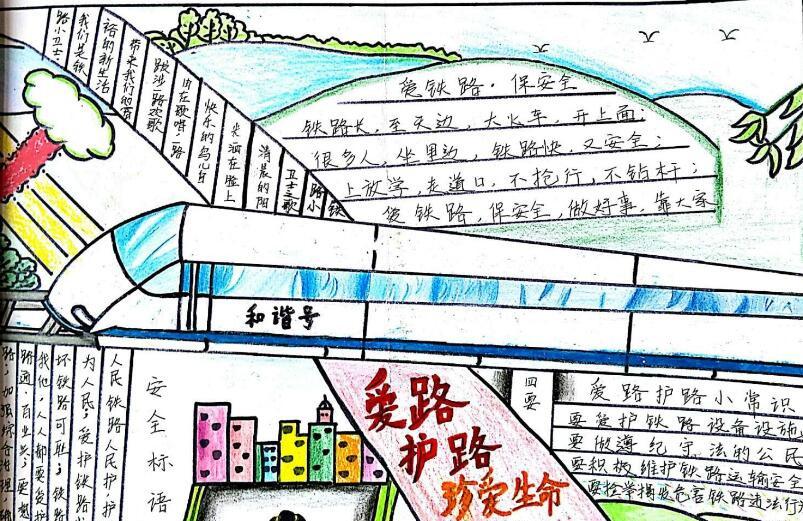 铁
路小
卫士之歌
清晨的阳
光洒在脸上
快乐的鸟儿自
由在歌唱一路
跋涉一路欢歌
带来我们的富
裕的新生活
我们是铁
路小卫士
爱铁路·保安全
铁路长,至天边,大火车,开上面;
很多人,坐里边,铁路快,又安全;
上放学,走道口,不抢行,不钻杆;
爱铁路,保安全,做好事,靠大家
和谐号
安全标语
人民铁路人民护,护
为人民;爱护铁路
坏铁路可耻;铁路
我他,人人都要爱护
路通,百业兴;要想
路;加强综合治理
爱路
护路
珍爱生命
四要
爱路护路小常识
要爱护铁路设备设施
要做遵纪守法的公民
要积极维护铁路运输安全
要检举揭发危害铁路违法行